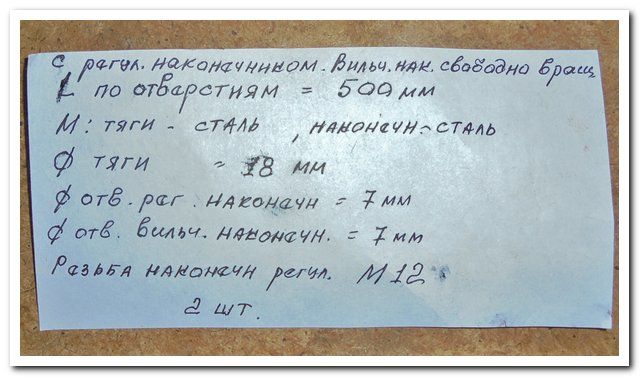 с регул. наконечником. Вильч. нак. свободно вращ
L по отверстиям = 500 мм
М: тяги - сталь , наконечн - сталь
ф тяги = 18 мм
ф отв. рег. наконечн = 7 мм
ф отв. вильч. наконечн. = 7 мм
Резьба наконечн регул. М12
2 шт.